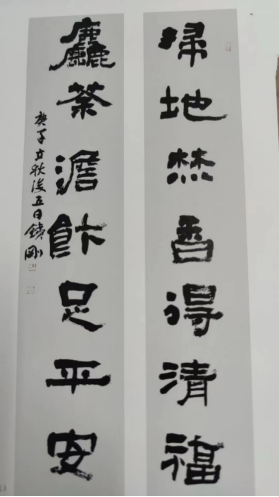 掃地焚香得清福
麤茶澹飰足平安
庚子立秋後五日鐵剛